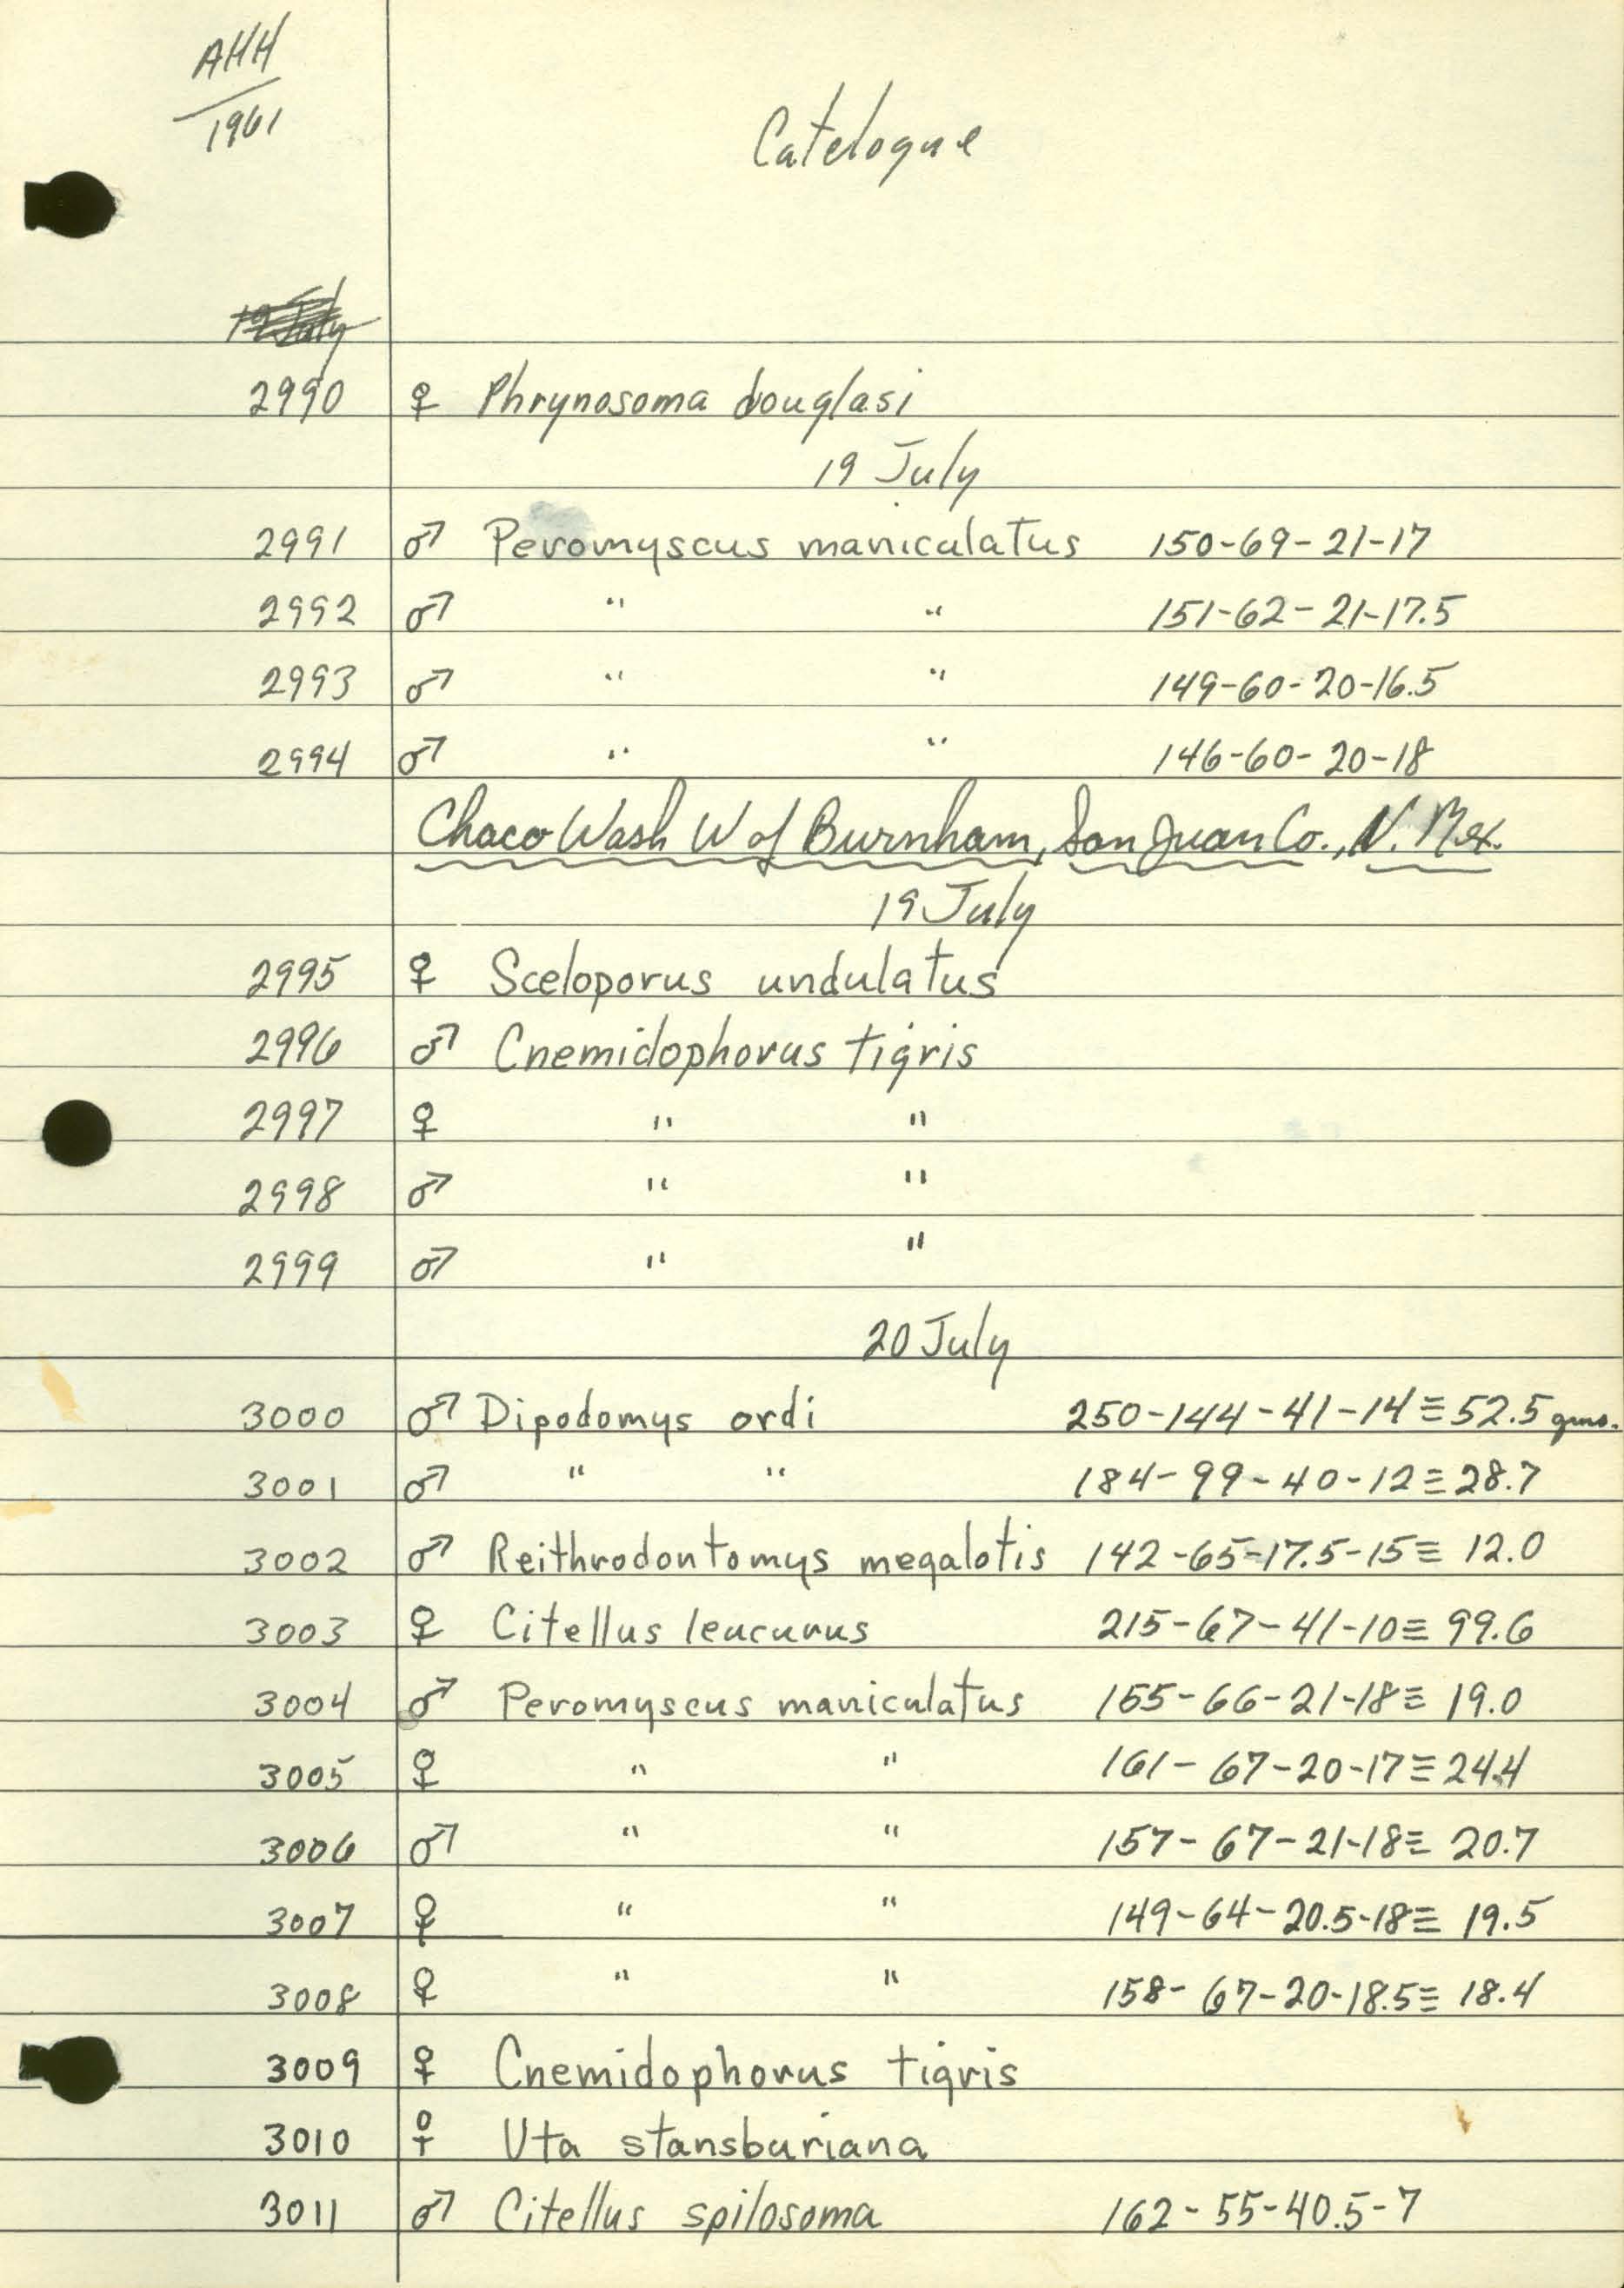 AHH
1961
Catelogue
19 July
2990 ♀ Phrynosoma douglasi
19 July
2991 ♂ Peromyscus maniculatus 150-69-21-17
2992 ♂ " " 151-62-21-17.5
2993 ♂ " " 149-60-20-16.5
2994 ♂ " " 146-60-20-18
Chaco Wash W of Burnham, San Juan Co., N. Mex.
19 July
2995 ♀ Sceloporus undulatus
2996 ♂ Cnemidophorus tigris
2997 ♀ " "
2998 ♂ " "
2999 ♂ " "
20 July
3000 ♂ Dipodomys ordi 250-144-41-14≡52.5 gms.
3001 ♂ " " 184-99-40-12≡28.7
3002 ♂ Reithrodontomys megalotis 142-65-17.5-15≡12.0
3003 ♀ Citellus leucurus 215-67-41-10≡99.6
3004 ♂ Peromyscus maniculatus 155-66-21-18≡19.0
3005 ♀ " " 161-67-20-17≡24.4
3006 ♂ " " 157-67-21-18≡20.7
3007 ♀ " " 149-64-20.5-18≡19.5
3008 ♀ " " 158-67-20-18.5≡18.4
3009 ♀ Cnemidophorus tigris
3010 ♀ Uta stansburiana
3011 ♂ Citellus spilosoma 162-55-40.5-7